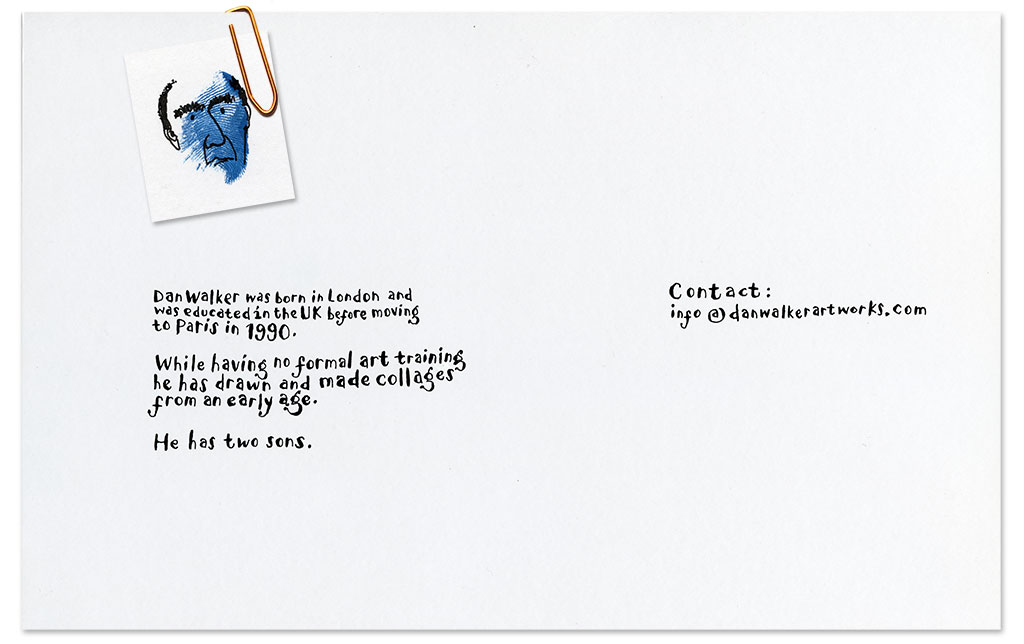 Dan Walker was born in London and
was educated in the UK before moving
to Paris in 1990.
While having no formal art training
he has drawn and made collages
from an early age.
He has two sons.
Contact:
info@danwalkerartworks.com